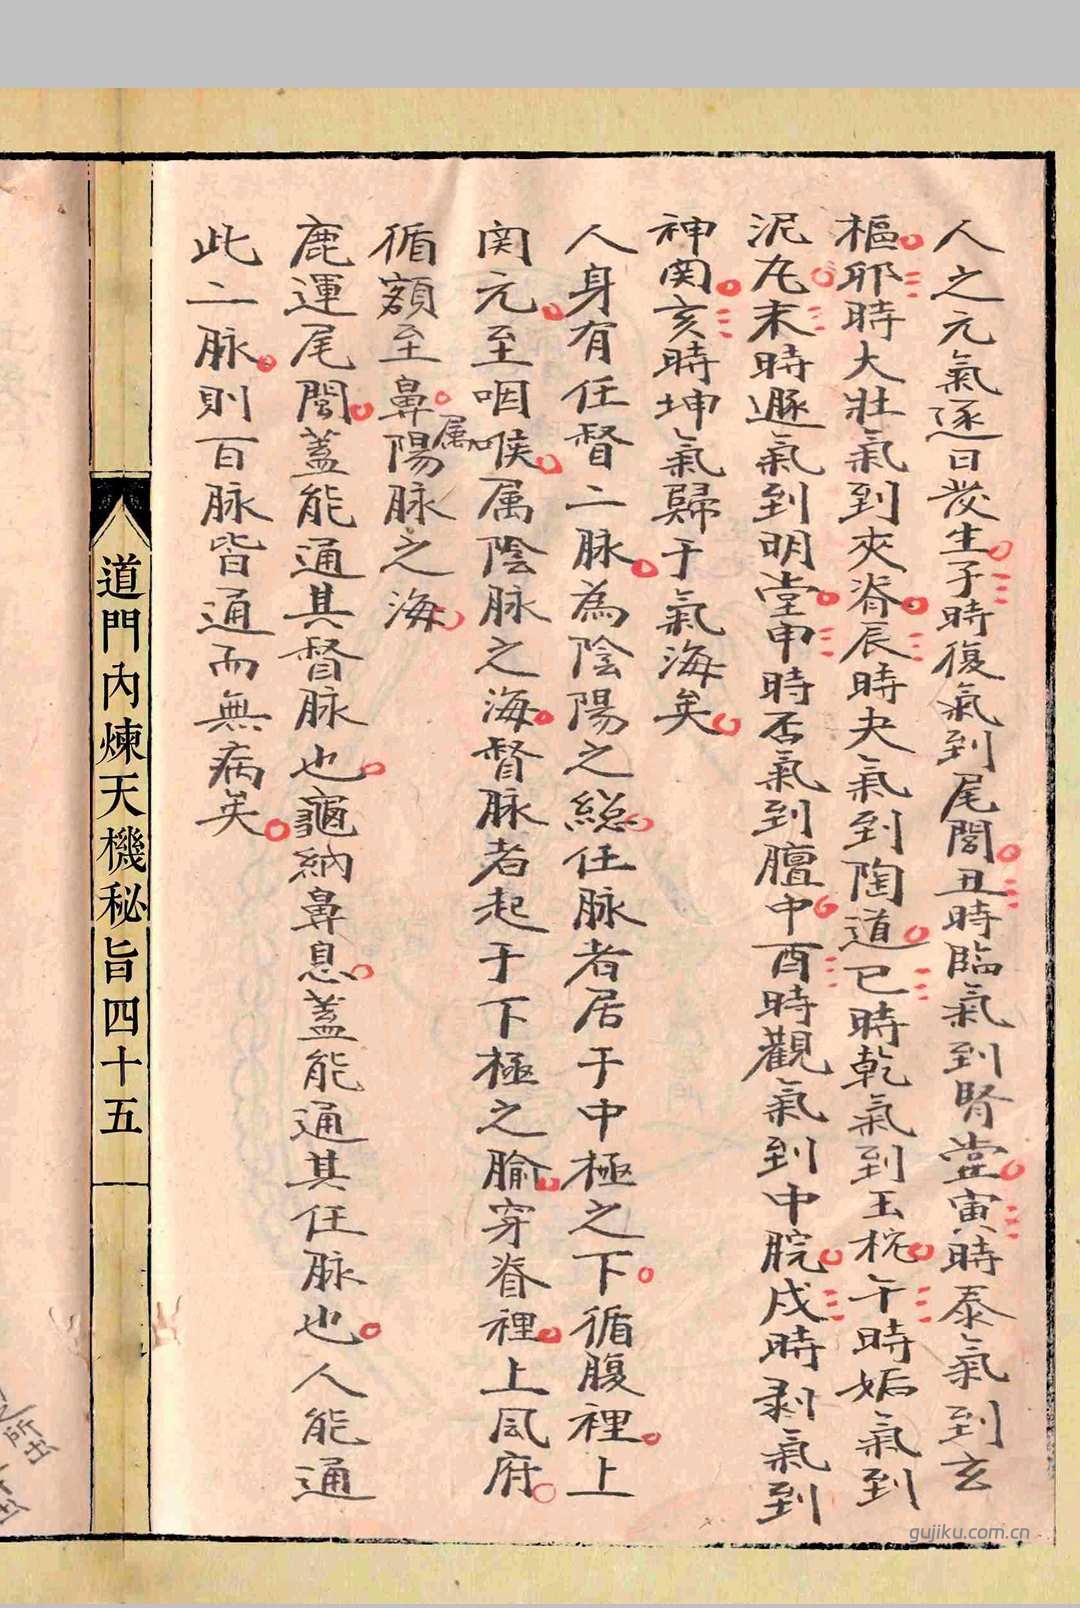 人之元氣逐日發生子時復氣到尾閭丑時臨氣到腎堂寅時泰氣到玄
樞耶時大壯氣到夾脊辰時夬氣到陶道巳時乾氣到玉枕午時姤氣到
泥丸末時遯氣到明堂申時否氣到膻中酉時觀氣到中脘戌時剥氣到
神関亥時坤氣歸于氣海矣
人身有任督二脉為陰陽之総任脉者居于中極之下循腹裡上
関元至咽喉属陰脉之海督脉者起于下極之腧穿脊裡上風府
循額至鼻属陽脉之海
鹿運尾閭蓋能通其督脉也龜納鼻息蓋能通其任脉也人能通
此二脉則百脉皆通而無病矣
道門内煉天機秘旨四十五
之所出
gujiku.com.cn